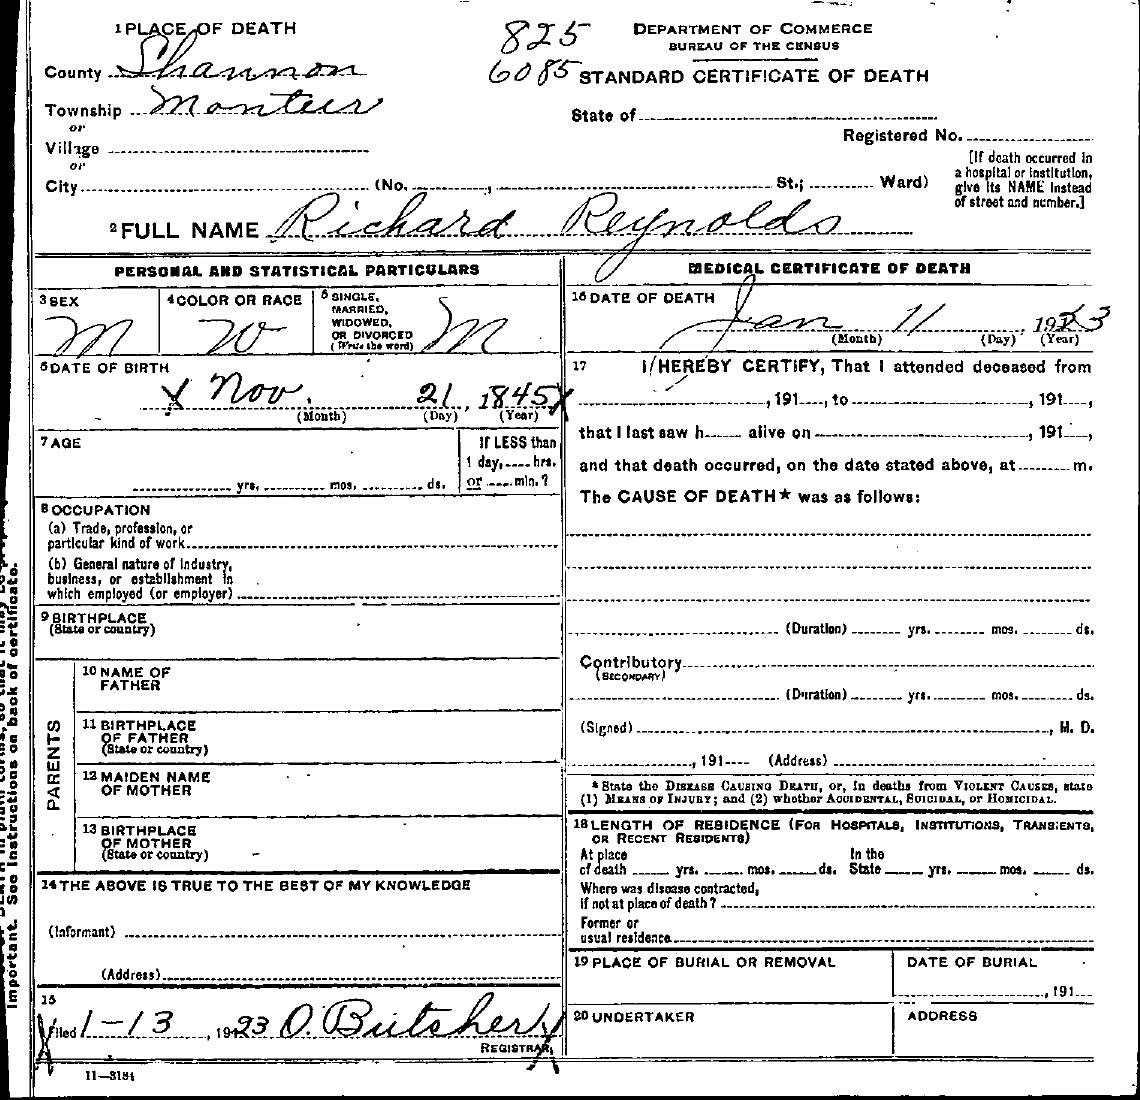 1 PLACE OF DEATH
County Shannon
Township Monteer
or
Village
or
City (No. , St.; Ward)
825
6085
DEPARTMENT OF COMMERCE
BUREAU OF THE CENSUS
STANDARD CERTIFICATE OF DEATH
State of
Registered No.
[If death occurred in
a hospital or institution,
give its NAME instead
of street and number.]
2 FULL NAME Richard Reynolds
PERSONAL AND STATISTICAL PARTICULARS
3 SEX
M
4 COLOR OR RACE
W
5 SINGLE,
MARRIED,
WIDOWED,
OR DIVORCED
(Write the word)
M
6 DATE OF BIRTH
X Nov. 21, 1845 X
(Month) (Day) (Year)
7 AGE
yrs. mos. ds.
If LESS than
1 day, hrs.
or min.?
8 OCCUPATION
(a) Trade, profession, or
particular kind of work
(b) General nature of industry,
business, or establishment in
which employed (or employer)
9 BIRTHPLACE
(State or country)
PARENTS
10 NAME OF
FATHER
11 BIRTHPLACE
OF FATHER
(State or country)
12 MAIDEN NAME
OF MOTHER
13 BIRTHPLACE
OF MOTHER
(State or country)
14 THE ABOVE IS TRUE TO THE BEST OF MY KNOWLEDGE
(Informant)
(Address)
15
Filed 1-13, 1923 O. Butsher
REGISTRAR
11—3184
MEDICAL CERTIFICATE OF DEATH
16 DATE OF DEATH
Jan 11, 1923
(Month) (Day) (Year)
17 I HEREBY CERTIFY, That I attended deceased from
, 191 , to , 191 ,
that I last saw h alive on , 191 ,
and that death occurred, on the date stated above, at m.
The CAUSE OF DEATH* was as follows:
(Duration) yrs. mos. ds.
Contributory
(SECONDARY)
(Duration) yrs. mos. ds.
(Signed) , M. D.
, 191 (Address)
* State the DISEASE CAUSING DEATH, or, in deaths from VIOLENT CAUSES, state
(1) MEANS OF INJURY; and (2) whether ACCIDENTAL, SUICIDAL, or HOMICIDAL.
18 LENGTH OF RESIDENCE (FOR HOSPITALS, INSTITUTIONS, TRANSIENTS,
OR RECENT RESIDENTS)
At place In the
of death yrs. mos. ds. State yrs. mos. ds.
Where was disease contracted,
if not at place of death?
Former or
usual residence
19 PLACE OF BURIAL OR REMOVAL
DATE OF BURIAL
, 191
20 UNDERTAKER
ADDRESS
important. See instructions on back of certificate.